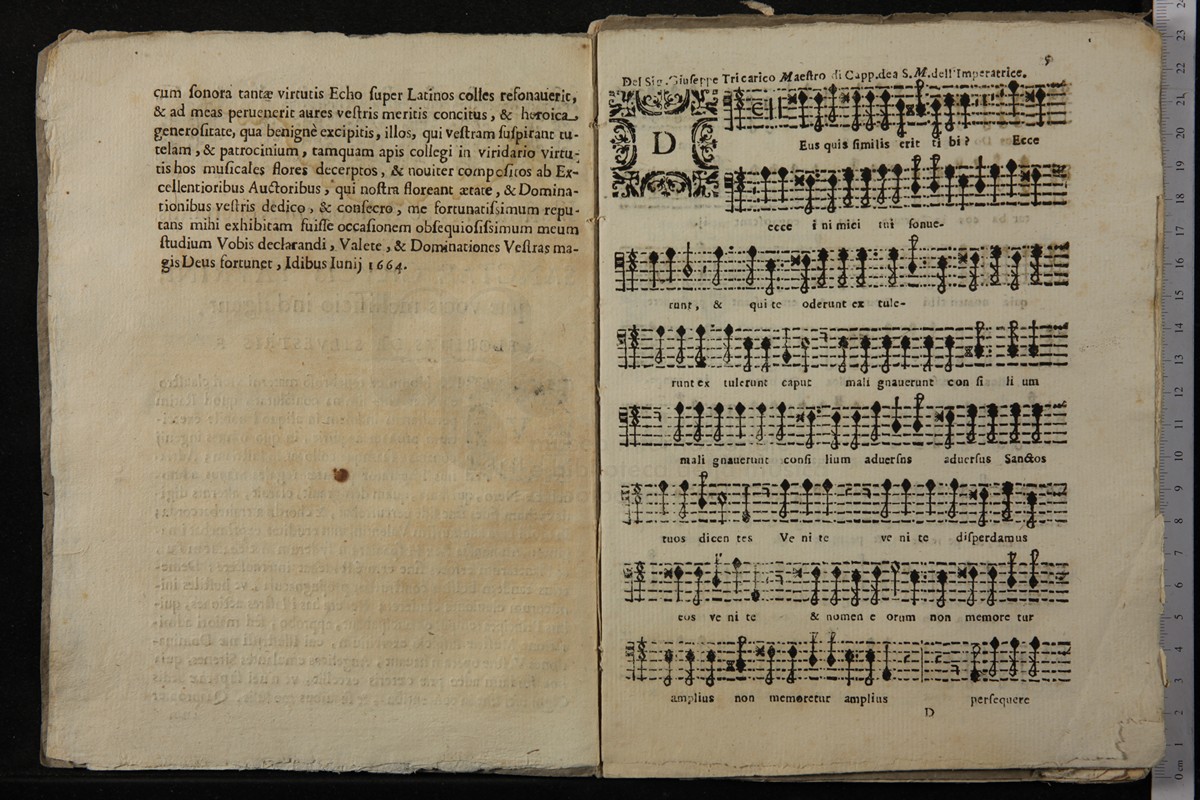 cum ſonora tantæ virtutis Echo ſuper Latinos colles reſonauerit,
& ad meas peruenerit aures veſtris meritis concitus, & heroica
generoſitate, qua benignè excipitis, illos, qui veſtram ſuſpirant tu-
telam, & patrocinium, tamquam apis collegi in viridario virtu-
tis hos muſicales flores decerptos, & nouiter compoſitos ab Ex-
cellentioribus Auctoribus, qui noſtra floreant ætate, & Domina-
tionibus veſtris dedico, & conſecro, me fortunatiſsimum repu-
tans mihi exhibitam fuiſſe occaſionem obſequioſiſsimum meum
ſtudium Vobis declarandi, Valete, & Dominationes Veſtras ma-
gis Deus fortunet, Idibus Iunij 1664.
Del Sig. Giuſeppe Tricarico Maeſtro di Capp. dea S. M. dell'Imperatrice.
D
Eus quis ſimilis erit ti bi? Ecce
ecce i ni mici tui ſonue-
runt, & qui te oderunt ex tule-
runt ex tulerunt caput mali gnauerunt con ſi li um
mali gnauerunt conſi lium aduerſns aduerſus Sanctos
tuos dicen tes Ve ni te ve ni te diſperdamus
eos ve ni te & nomen e orum non memore tur
amplius non memoretur amplius perſequere
D